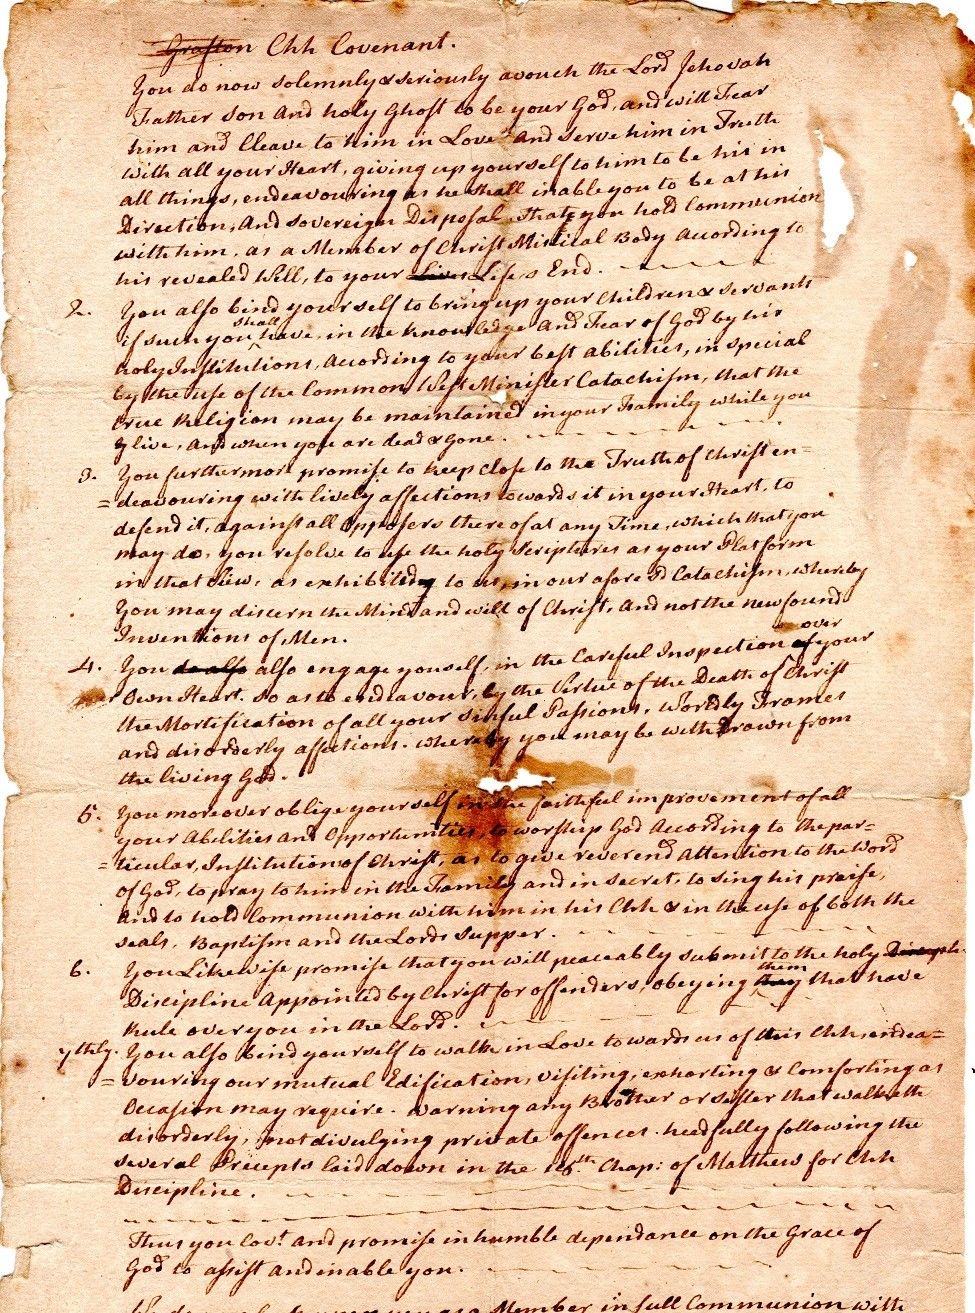 Grafton Chh Covenant.
You do now solemnly & seriously avouch the Lord Jehovah
Father Son And holy Ghost to be your God, and will Fear
him and Cleave to him in Love And serve him in Truth
with all your Heart, giving up yourself to him to be his in
all things, endeavouring as he shall inable you to be at his
Direction, And sovereign Disposal, that you hold Communion
with him, as a Member of Christ Mistical Body According to
his revealed Will, to your Lives Life,s End.
2. You also bind yourself to bring up your Children & servants
shall
if such you have, in the Knowledge And Fear of God by his
holy Institutions, According to your best abilities, in special
by the use of the Common West Minister Catachism, that the
true Religion may be maintained in your Family while you
live, And when you are dead & Gone.
3. You furthermore promise to keep close to the Truth of Christ en=
=deavouring with lively affections towards it in your Heart, to
defend it, against all Opposers thereof at any Time, which that you
may do, you resolve to use the holy Scriptures as your Platform
in that View, as exhibited to us, in our afore sd Catachism, whereby
You may discern the Mind and will of Christ, And not the newfound
Inventions of Men.
over
4. You do also also engage youself, in the Careful Inspection of your
Own Heart. So as to endeavour, by the Virtue of the Death of Christ
the Mortification of all your sinful Passions, Worldly Frames
and disorderly affections. whereby you may be withdrawn from
the living God.
5. You moreover oblige yourself in the faithful improvement of all
your Abilities and Opportunities, to worship God According to the par=
=ticular, Institution of Christ, as to give reverend Attention to the Word
of God, to pray to him in the Family and in secret, to sing his praise,
And to hold Communion with him in his Chh & in the use of both the
seals, Baptism and the Lords Supper.
6. You Likewise promise that you will peaceably submit to the holy
them
Discipline Appointed by Christ for offenders, obeying they that have
Rule over you in the Lord.
7thly. You also bind yourself to walk in Love towards us of this Chh, endea=
=vouring our mutual Edification, Visiting, exhorting & Comforting as
Occasion may require. warning any Brother or sister that walketh
disorderly, not divulging private offences. heedfully following the
several Precepts laid down in the 18th Chap: of Matthew for Chh
Discipline.
Thus you Covt and promise in humble dependance on the Grace of
God to assist and inable you.
as a Member in full Communion with